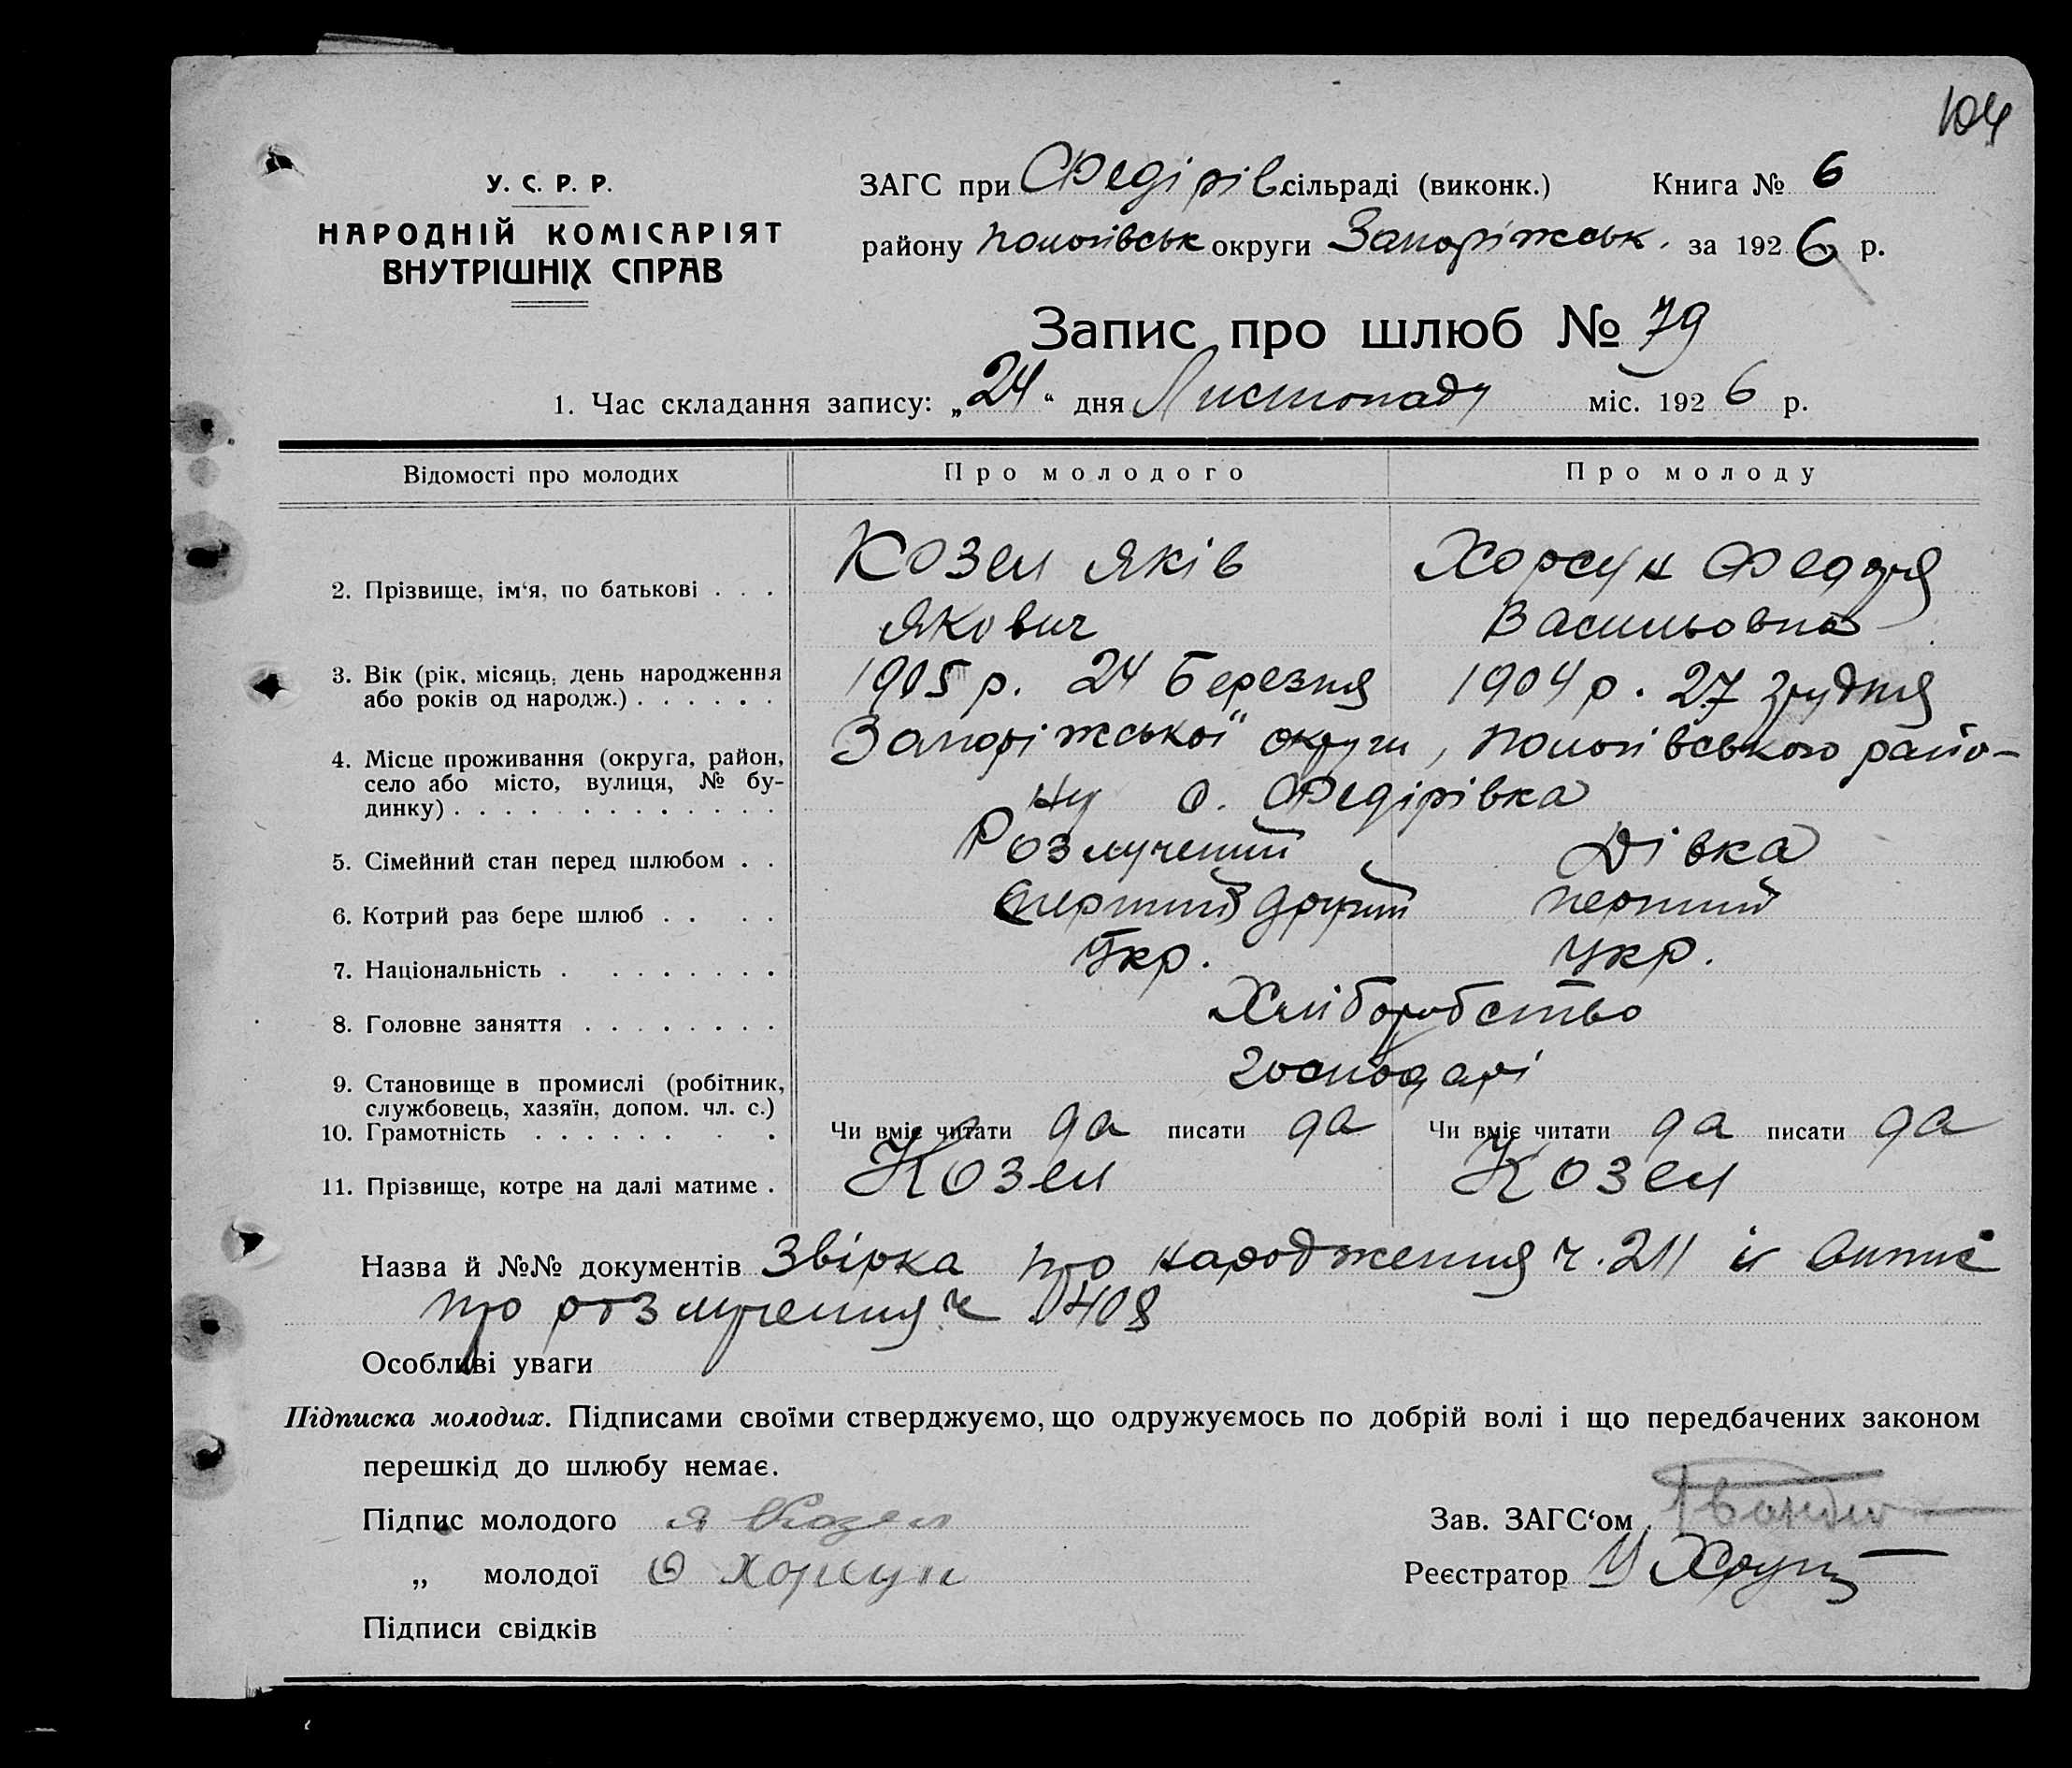 104
У. С. Р. Р.
НАРОДНІЙ КОМІСАРІЯТ
ВНУТРІШНІХ СПРАВ
ЗАГС при Федірів. сільраді (виконк.) Книга № 6
району Пологівськ округи Запоріжськ. за 1926 р.
Запис про шлюб № 79
1. Час складання запису: „24“ дня Листопаду міс. 1926 р.
Відомості про молодих Про молодого Про молоду
2. Прізвище, ім‘я, по батькові . . . Козел Яків Хорсун Федора
Якович Васильовна
3. Вік (рік, місяць, день народження 1905 р. 24 Березня 1904 р. 27 грудня
або років од народж.) . . . . . .
4. Місце проживання (округа, район, Запоріжської округи, Пологівського райо-
село або місто, вулиця, № бу- ну с. Федірівка
динку) . . . . . . . . . . . . .
5. Сімейний стан перед шлюбом . . Розлучений Дівка
6. Котрий раз бере шлюб . . . . (перший) другий перший
7. Національність . . . . . . . . Укр. Укр.
8. Головне заняття . . . . . . . . Хліборобство
9. Становище в промислі (робітник, господарі
службовець, хазяїн, допом. чл. с.)
10. Грамотність . . . . . . . . Чи вміє читати да писати да Чи вміє читати да писати да
11. Прізвище, котре на далі матиме . Козел Козел
Назва й №№ документів Звірка про народження ч. 211 и випис
про розлучення ч 408
Особливі уваги
Підписка молодих. Підписами своїми стверджуємо, що одружуємось по добрій волі і що передбачених законом
перешкід до шлюбу немає.
Підпис молодого Я Козел Зав. ЗАГС‘ом
„ молодої Ф Хорсун Реєстратор
Підписи свідків